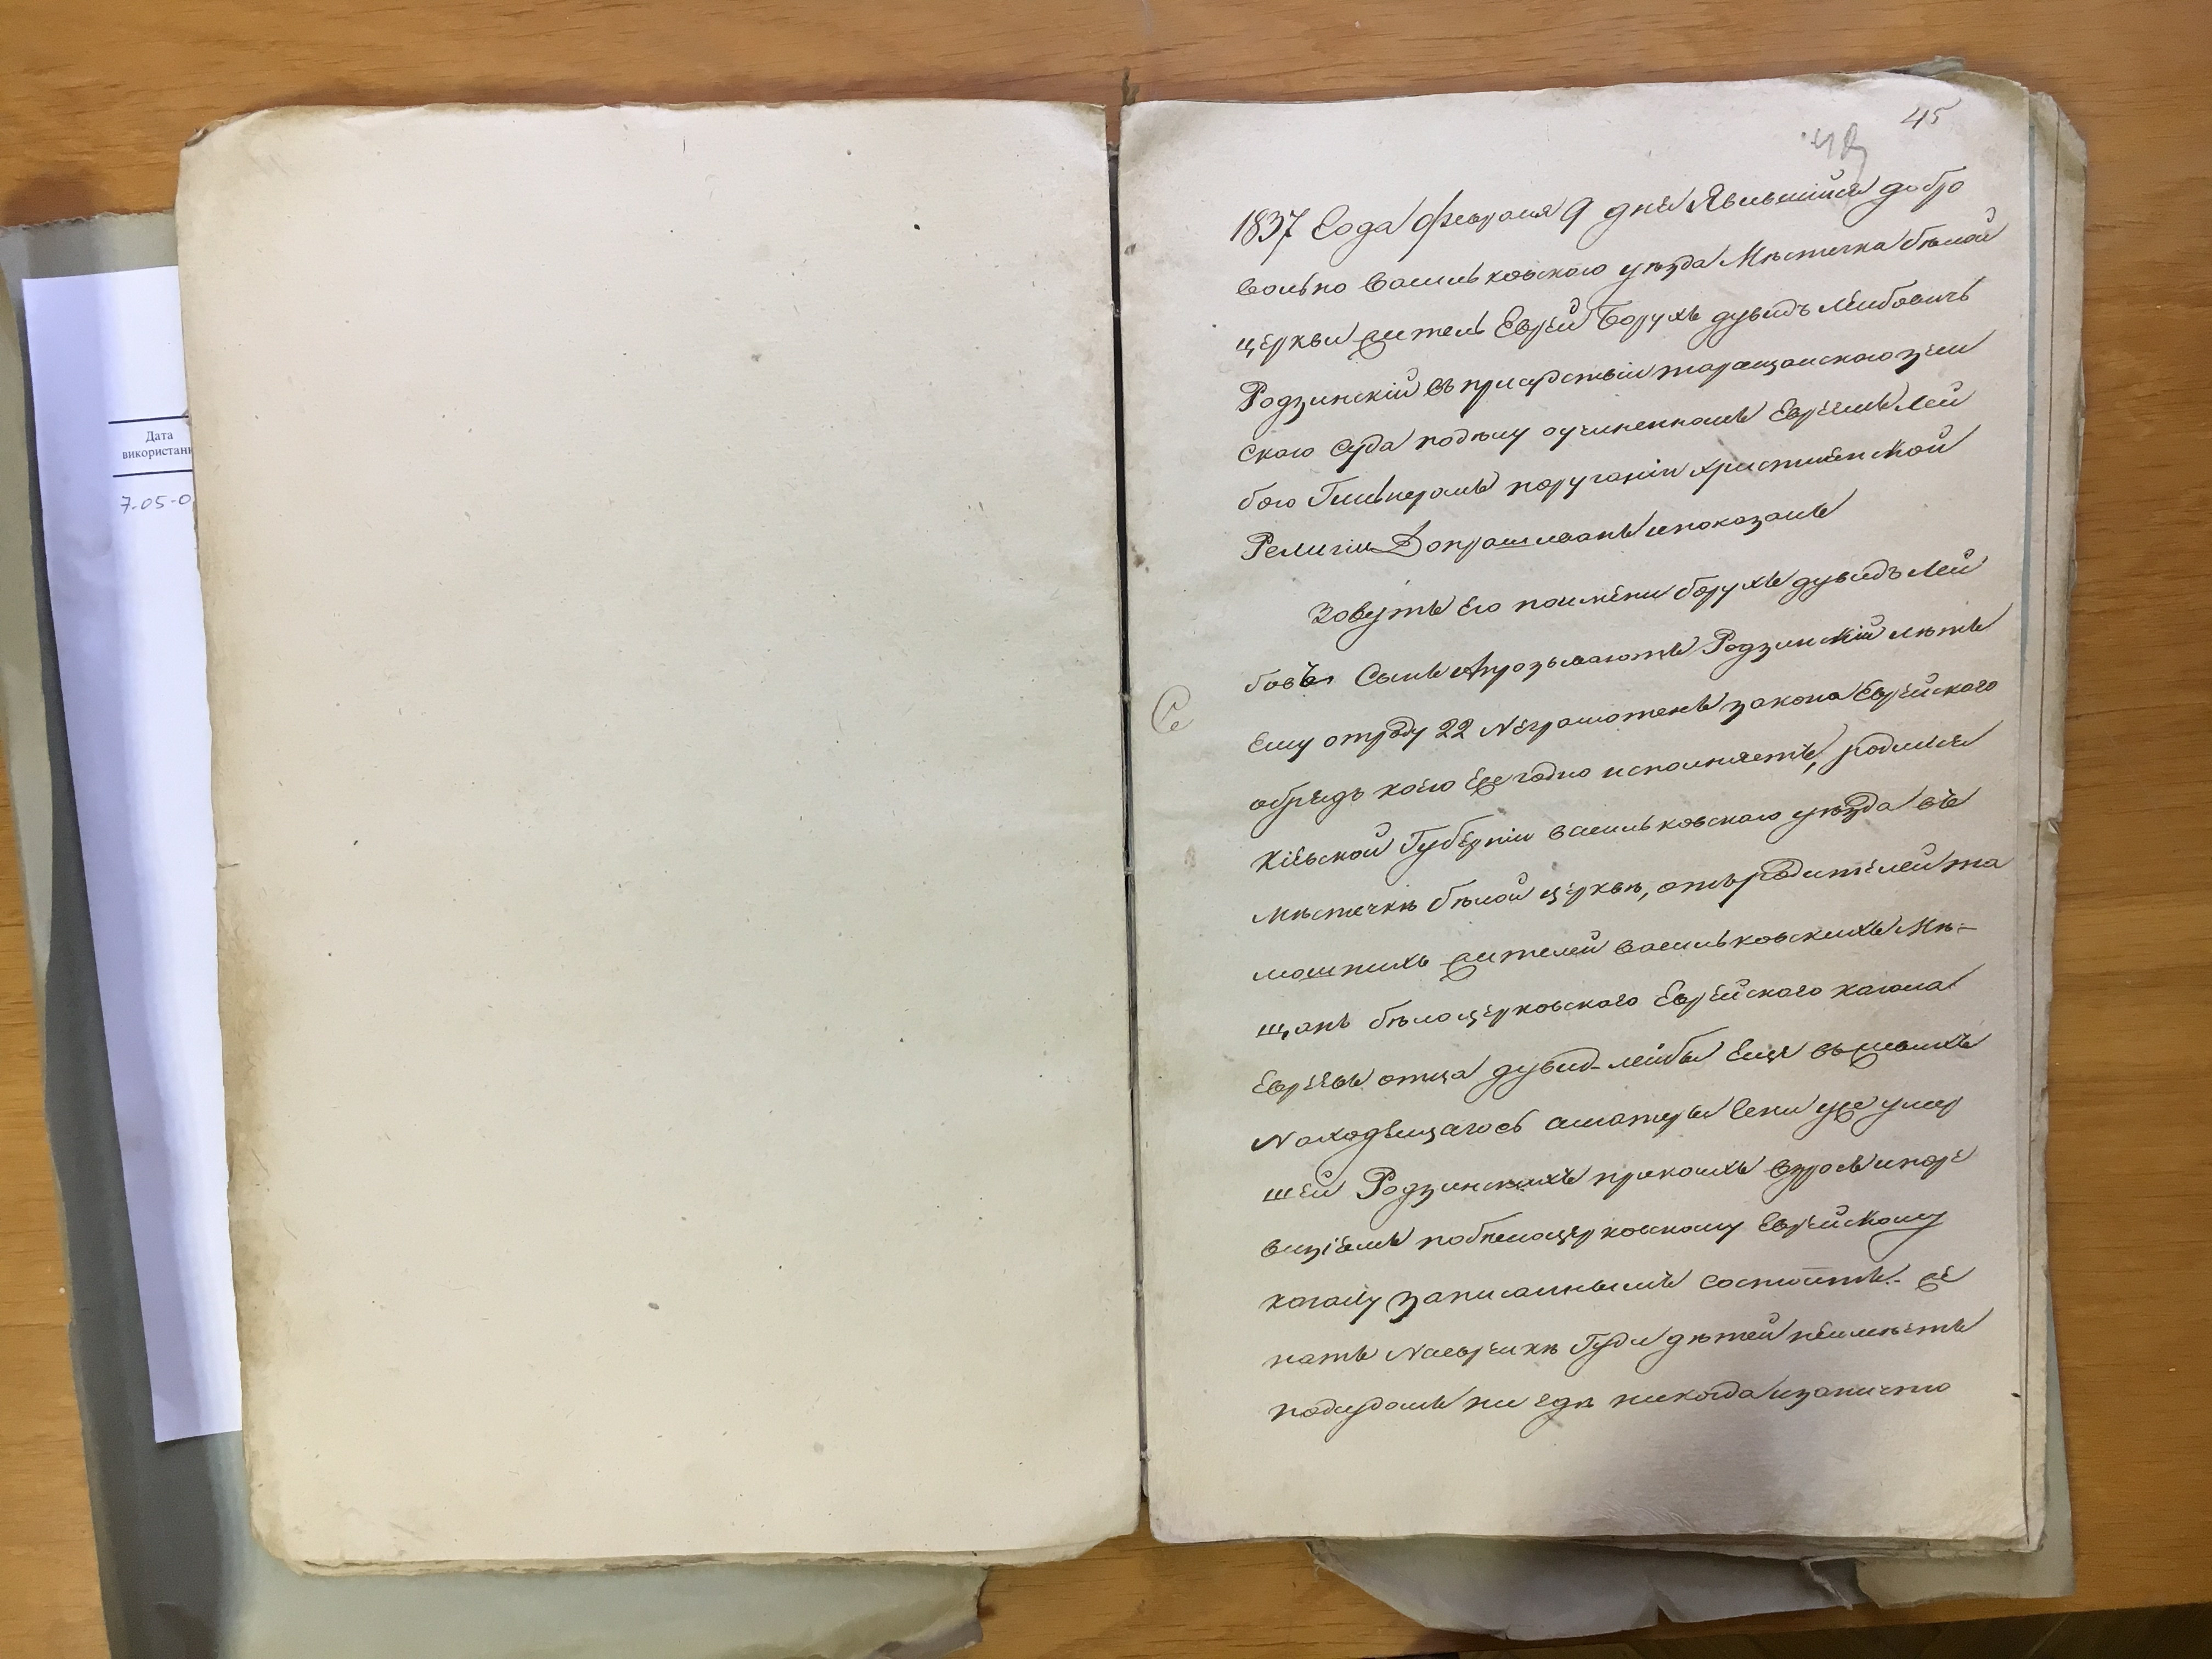 Дата
використан
7.05-0
45
1837 Года февраля 9 дня Явившийся добро
вольно васильковского уѣзда Мѣстечка бѣлой
церкви житель Еврей Борухъ дувидъ Лейбовичъ
Родзинскій въ присудствіи таращанского зем
ского суда подѣлу о учиненномъ Евреемъ Лей
бою поруганіи христиенской
Религіи Допрашиванъ и показалъ
Зовутъ Его поимени борухъ дувидъ Лей
бовъ Сынъ Апрозываютъ Родзинскій лѣтъ
Ему отроду 22 Неграмотенъ закона Еврейского
обрядъ коего ежегодно исполняетъ, родился
Кіевской Губерніи васильковского уѣзда въ
мѣстечкѣ бѣлой церквѣ, отъ родителей та
мошнихъ жителей васильковскихъ Мѣ-
щанъ бѣлоцерковского Еврейского кагала
Евреевъ отца дувид-лейбы Еще въ живыхъ
Находящагось аматеры уже умер
шей Родзинскихъ прикоихъ взросъ и поре
визіямъ побѣлоцерковскому Еврейскому
кагалу записаннымъ состоитъ. же
натъ Наеврейкѣ дѣтей неимѣетъ
подсудомъ ни гдѣ никогда изаничто